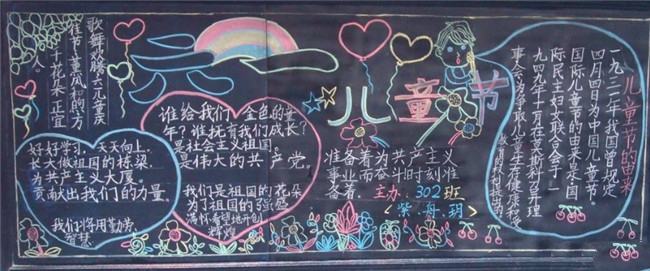 歌舞欢腾六一儿童庆
佳节童岚和的方
个花朵正宜
人。
好好学习，天天向上。
长大做祖国的栋梁
为共产主义大厦
贡献出我们的力量。
我们将用勤劳、
智慧
谁给我们金色的童
年？谁抚育我们成长？
是社会主义祖国。
是伟大的共产党。
我们是祖国的花朵
为了祖国的强盛
满怀希望地开创
辉煌
儿童节
准备着为共产主义
事业而奋斗时刻准
备着。主办：302班
紫丹玥
儿童节的由来
一九三二年我国曾规定
四月四日为中国儿童节。
国际儿童节的由来是国
际民主妇女联合会于一
九四九年十一月在莫斯科召开理
事会为争取儿童生存健康和